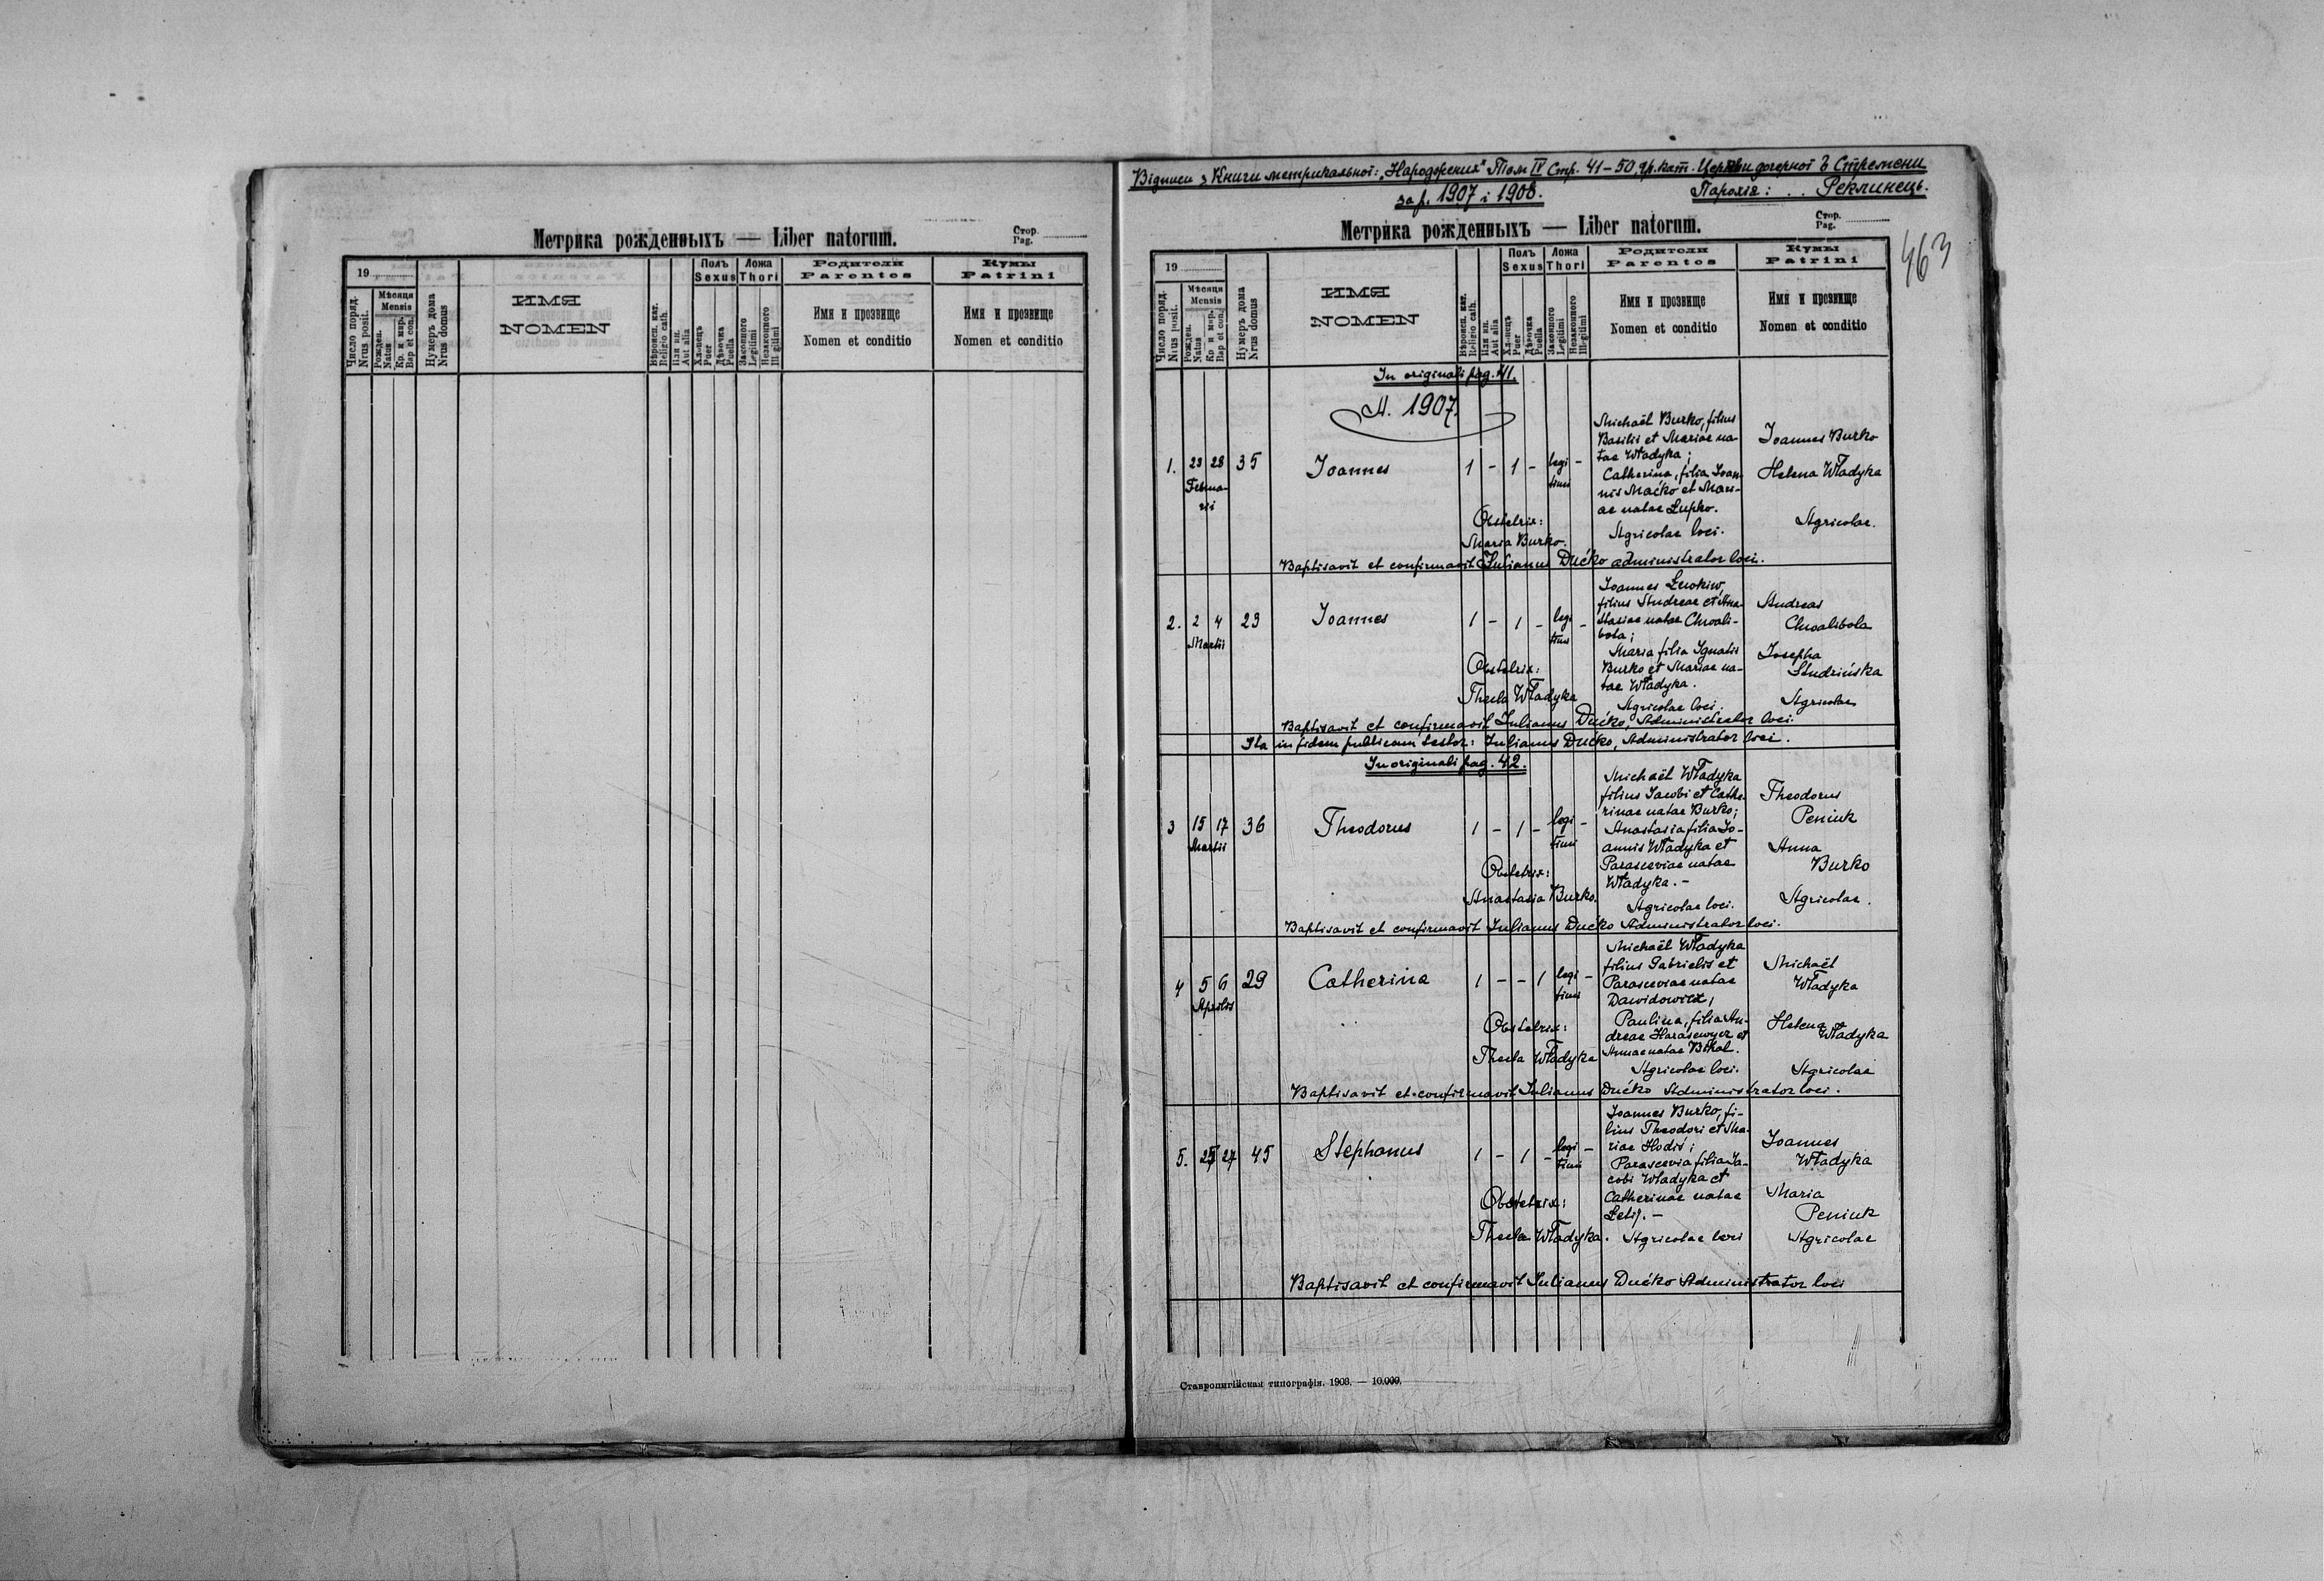 Метрика рожденныхъ — Liber natorum.
Стор.
Pag.
19
Число поряд.
Nrus posit.
Мѣсяця
Mensis
Рожден.
Natus
Кр. и мѵр.
Bap et con.
Нумеръ дома
Nrus domus
ИМЯ
NOMEN
Вѣроисп. каѳ.
Religio cath.
Или ин.
Aut alia
Полъ
Sexus
Хлопецъ
Puer
Дѣвочка
Puella
Ложа
Thori
Законного
Legitimi
Незаконного
Illegitimi
Родители
Parentes
Имя и прозвище
Nomen et conditio
Кумы
Patrini
Имя и прозвище
Nomen et conditio
Відписи з Книги метрикальної: „Народжених" Том IV Стр. 41–50 гр. кат. Церкви дочерної в Стремени
за р. 1907 і 1908.
Парохія: . . Реклинець.
463
Метрика рожденныхъ — Liber natorum.
Стор.
Pag.
19
Число поряд.
Nrus posit.
Мѣсяця
Mensis
Рожден.
Natus
Кр и мѵр.
Bap et con.
Нумеръ дома
Nrus domus
ИМЯ
NOMEN
Вѣроисп. каѳ.
Religio cath.
Или ин.
Aut alia
Полъ
Sexus
Хлопецъ
Puer
Дѣвочка
Puella
Ложа
Thori
Законного
Legitimi
Незаконного
Illegitimi
Родители
Parentes
Имя и прозвище
Nomen et conditio
Кумы
Patrini
Имя и прозвище
Nomen et conditio
In originali pag. 41.
A. 1907.
1. 23 28 35 Joannes 1 – 1 – legi- –
timi
Februa-
rii
Michaël Burko, filius
Basilii et Mariae na-
tae Władyka;
Catherina, filia Joan-
nis Maćko et Mari-
ae natae Łupko.
Agricolae loci.
Joannes Burko
Helena Władyka
Agricolae.
Obstetrix:
Maria Burko.
Baptisavit et confirmavit Julianus Dućko administrator loci.
2. 2 4 23 Joannes 1 – 1 – legi –
timi
Martii
Joannes
filius Andreae et Ana-
stasiae natae Chwali-
bota;
Maria filia Ignatii
Burko et Mariae na-
tae Władyka.
Agricolae loci.
Andreas
Chwalibota
Josepha
Agricolae
Obstetrix:
Thecla Władyka
Baptisavit et confirmavit Julianus Dućko, Administrator loci.
Ita in fidem publicam testor: Julianus Dućko, Administrator loci.
In originali pag. 42.
3 15 17 36 Theodorus 1 – 1 – legi –
timi
Martii
Michaël Władyka
filius Jacobi et Cathe-
rinae natae Burko;
Anastasia filia Jo-
annis Władyka et
Parasceviae natae
Władyka. –
Agricolae loci.
Theodorus
Peniuk
Anna
Burko
Agricolae.
Obstetrix:
Anastasia Burko.
Baptisavit et confirmavit Julianus Dućko Administrator loci.
4 5 6 29 Catherina 1 – – 1 legi –
timi
Aprilis
Michaël Władyka
filius Gabrielis et
Parasceviae natae
Dawidowicz,
Paulina, filia An-
dreae Harasewycz et
Annae natae
Agricolae loci.
Michaël
Władyka
Helena
Władyka
Agricolae
Obstetrix:
Thecla Władyka
Baptisavit et confirmavit Julianus Dućko Administrator loci.
5. 25 27 45 Stephanus 1 – 1 – legi –
timi
Joannes Burko, fi-
lius Theodori et Ma-
riae Hodiś;
Parascevia filia Ja-
cobi Władyka et
Catherinae natae
Agricolae loci
Joannes
Władyka
Maria
Peniuk
Agricolae
Obstetrix:
Thecla Władyka.
Baptisavit et confirmavit Julianus Dućko Administrator loci
Ставропигійская типографія. 1903. — 10.000.